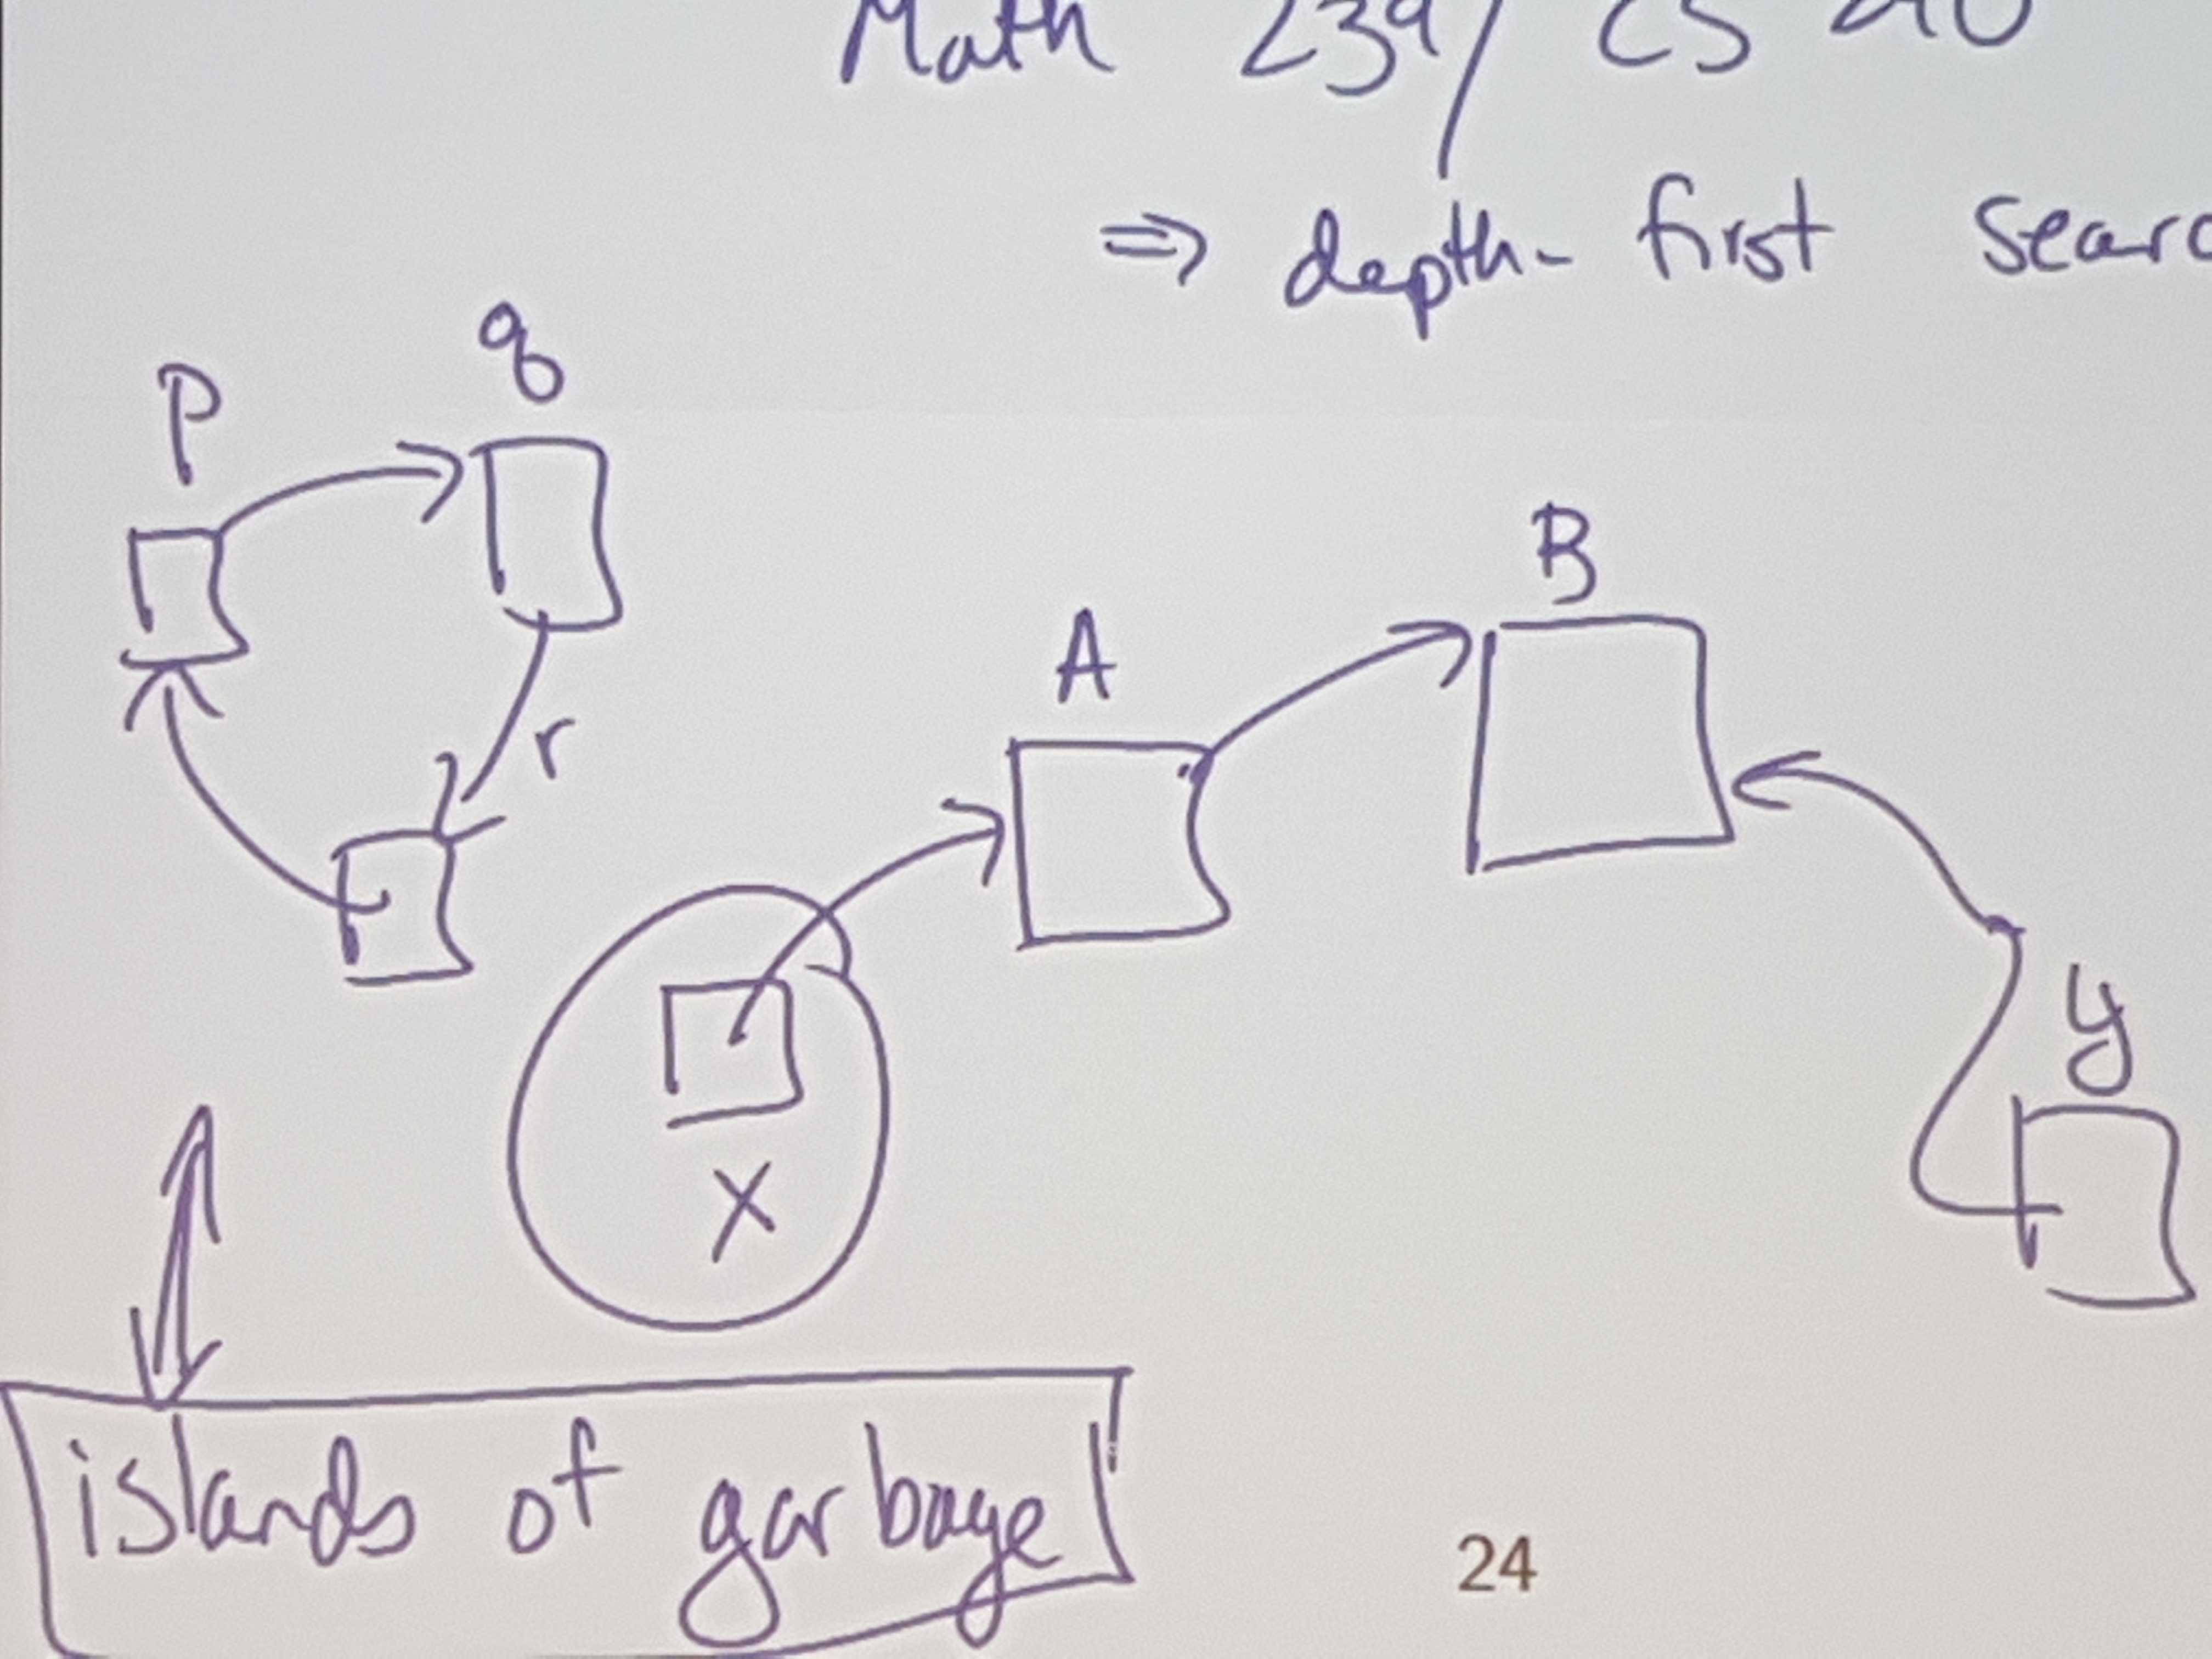 Math 239/ CS
⇒ depth- first
P
q
B
A
r
y
X
islands of garbage
24